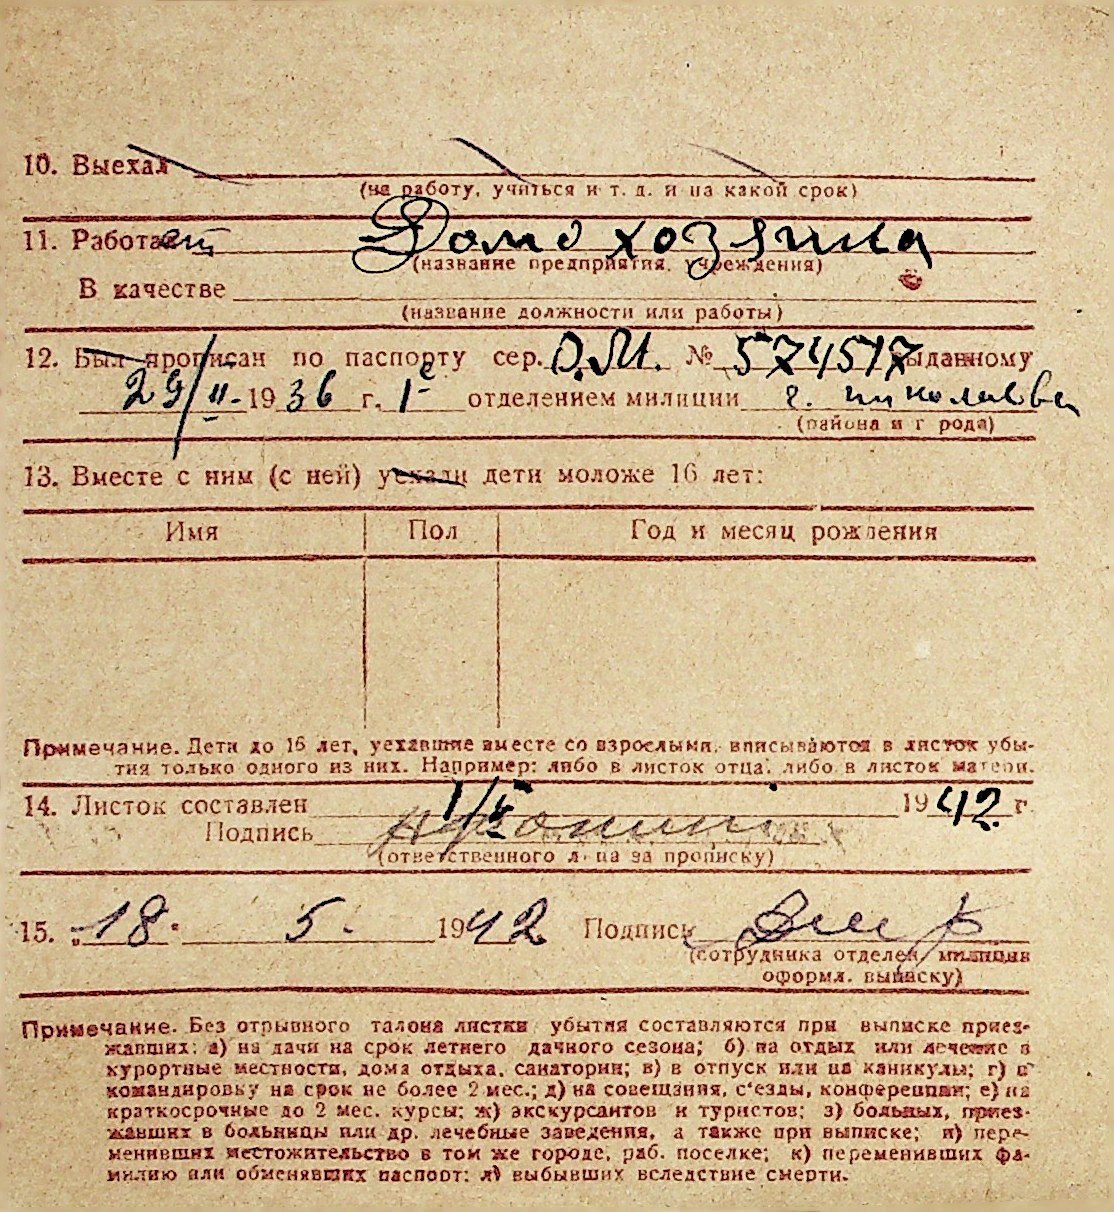 10. Выехал
(на работу, учиться и т. д. и на какой срок)
11. Работает Домохозяйка
(название предприятия, учреждения)
В качестве
(название должности или работы)
12. Был прописан по паспорту сер. О.М. № 574517 выданному
29/II. 1936 г. 1е отделением милиции г. Николаева
(района и города)
13. Вместе с ним (с ней) уехали дети моложе 16 лет:
Имя Пол Год и месяц рождения
Примечание. Дети до 16 лет, уехавшие вместе со взрослыми, вписываются в листок убы-
тия только одного из них. Например: либо в листок отца, либо в листок матери.
14. Листок составлен 1/V 1942 г.
Подпись
(ответственного лица за прописку)
15. „18" 5. 1942 Подпись
(сотрудника отделен. милиции
оформл. выписку)
Примечание. Без отрывного талона листки убытия составляются при выписке приез-
жавших: а) на дачи на срок летнего дачного сезона; б) на отдых или лечение в
курортные местности, дома отдыха, санатории; в) в отпуск или на каникулы; г) в
командировку на срок не более 2 мес.; д) на совещания, с'езды, конференции; е) на
краткосрочные до 2 мес. курсы; ж) экскурсантов и туристов; з) больных, приез-
жавших в больницы или др. лечебные заведения, а также при выписке; и) пере-
менивших местожительство в том же городе, раб. поселке; к) переменивших фа-
милию или обменявших паспорт; л) выбывших вследствие смерти.